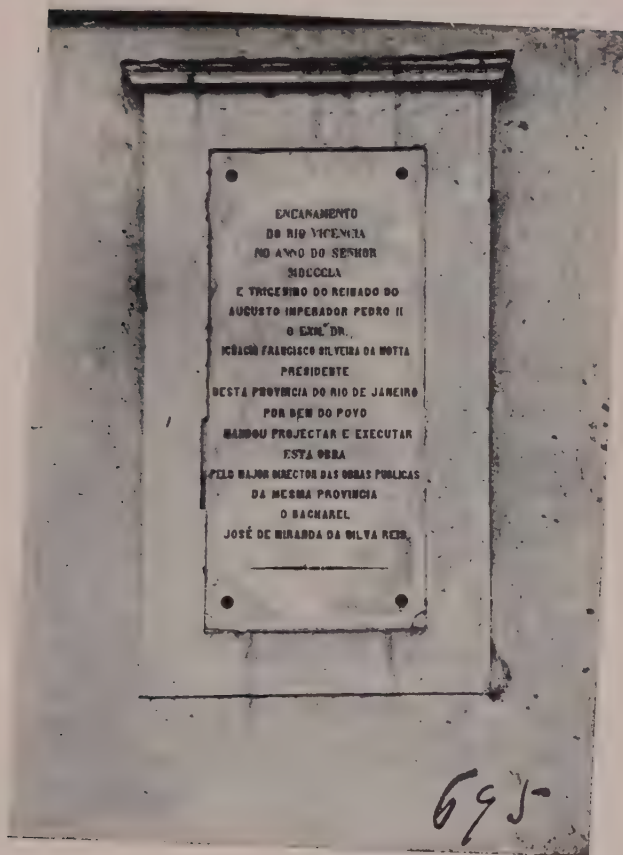 ENCANAMENTO
DO RIO VICENCIA
NO ANNO DO SENHOR
MDCCCLX
E TRIGESIMO DO REINADO DO
AUGUSTO IMPERADOR PEDRO II
O EXMº DR.
IGNACIO FRANCISCO SILVEIRA DA MOTTA
PRESIDENTE
DESTA PROVINCIA DO RIO DE JANEIRO
POR BEM DO POVO
MANDOU PROJECTAR E EXECUTAR
ESTA OBRA
PELO MAJOR DIRECTOR DAS OBRAS PUBLICAS
DA MESMA PROVINCIA
O BACHAREL
JOSÉ DE MIRANDA DA SILVA REIS
695